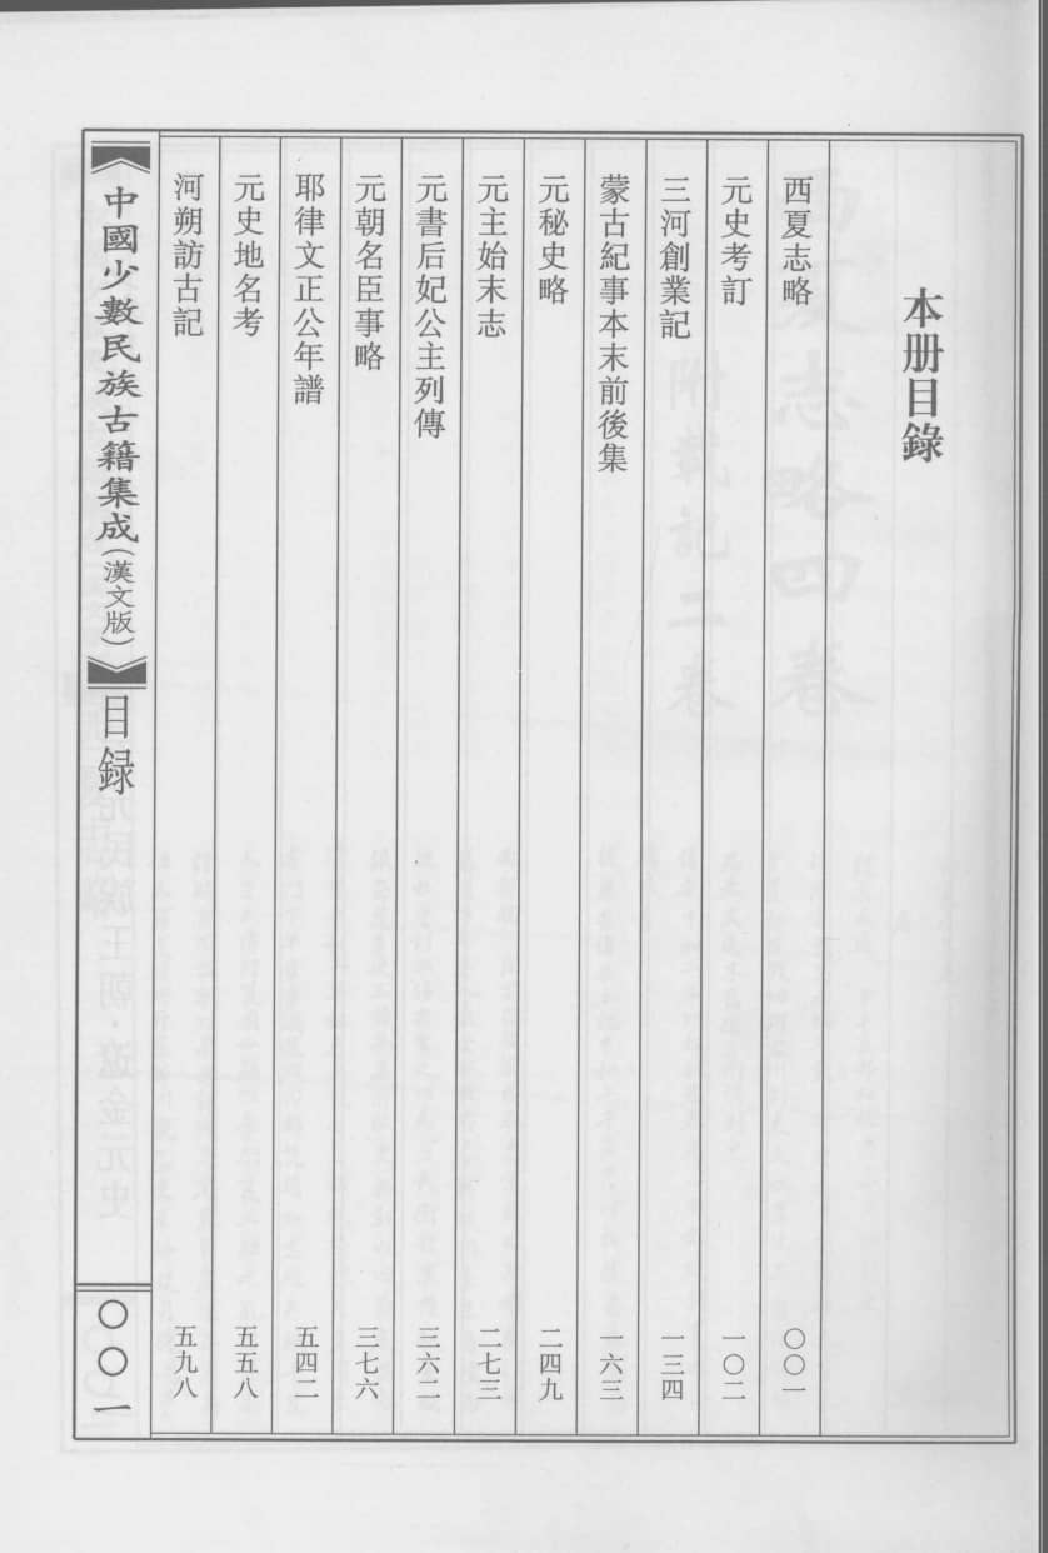 本册目錄
西夏志略 〇〇一
元史考訂 一〇二
三河創業記 一三四
蒙古紀事本末前後集 一六三
元秘史略 二四九
元主始末志 二七三
元書后妃公主列傳 三六二
元朝名臣事略 三七六
耶律文正公年譜 五四二
元史地名考 五五八
河朔訪古記 五九八
中國少數民族古籍集成(漢文版) 目録 〇〇一